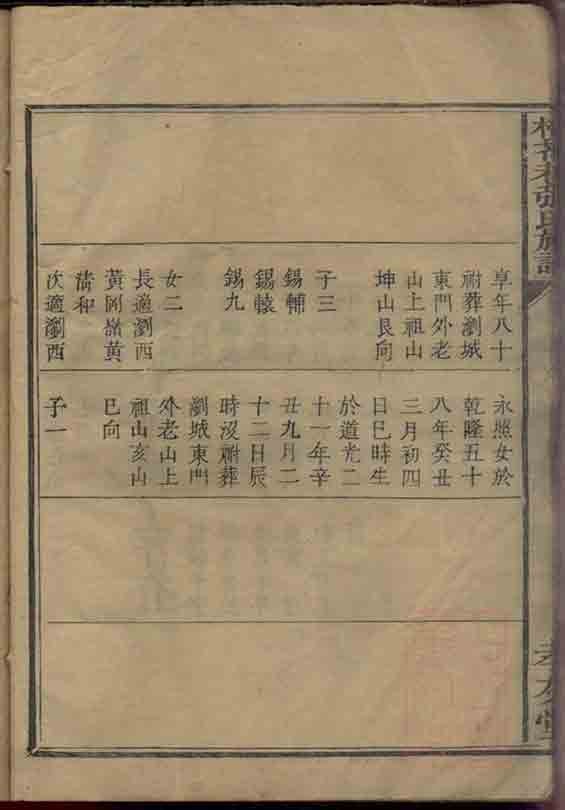 氏族譜
享年八十
祔葬瀏城
東門外老
山上祖山
坤山艮向
子三
錫輔
錫轅
錫九
女二
長適瀏西
黃岡嶺黃
清和
次適瀏西
永熙女於
乾隆五十
八年癸丑
三月初四
日巳時生
於道光二
十一年辛
丑九月二
十二日辰
時沒祔葬
瀏城東門
外老山上
祖山亥山
巳向
子一
孝友堂